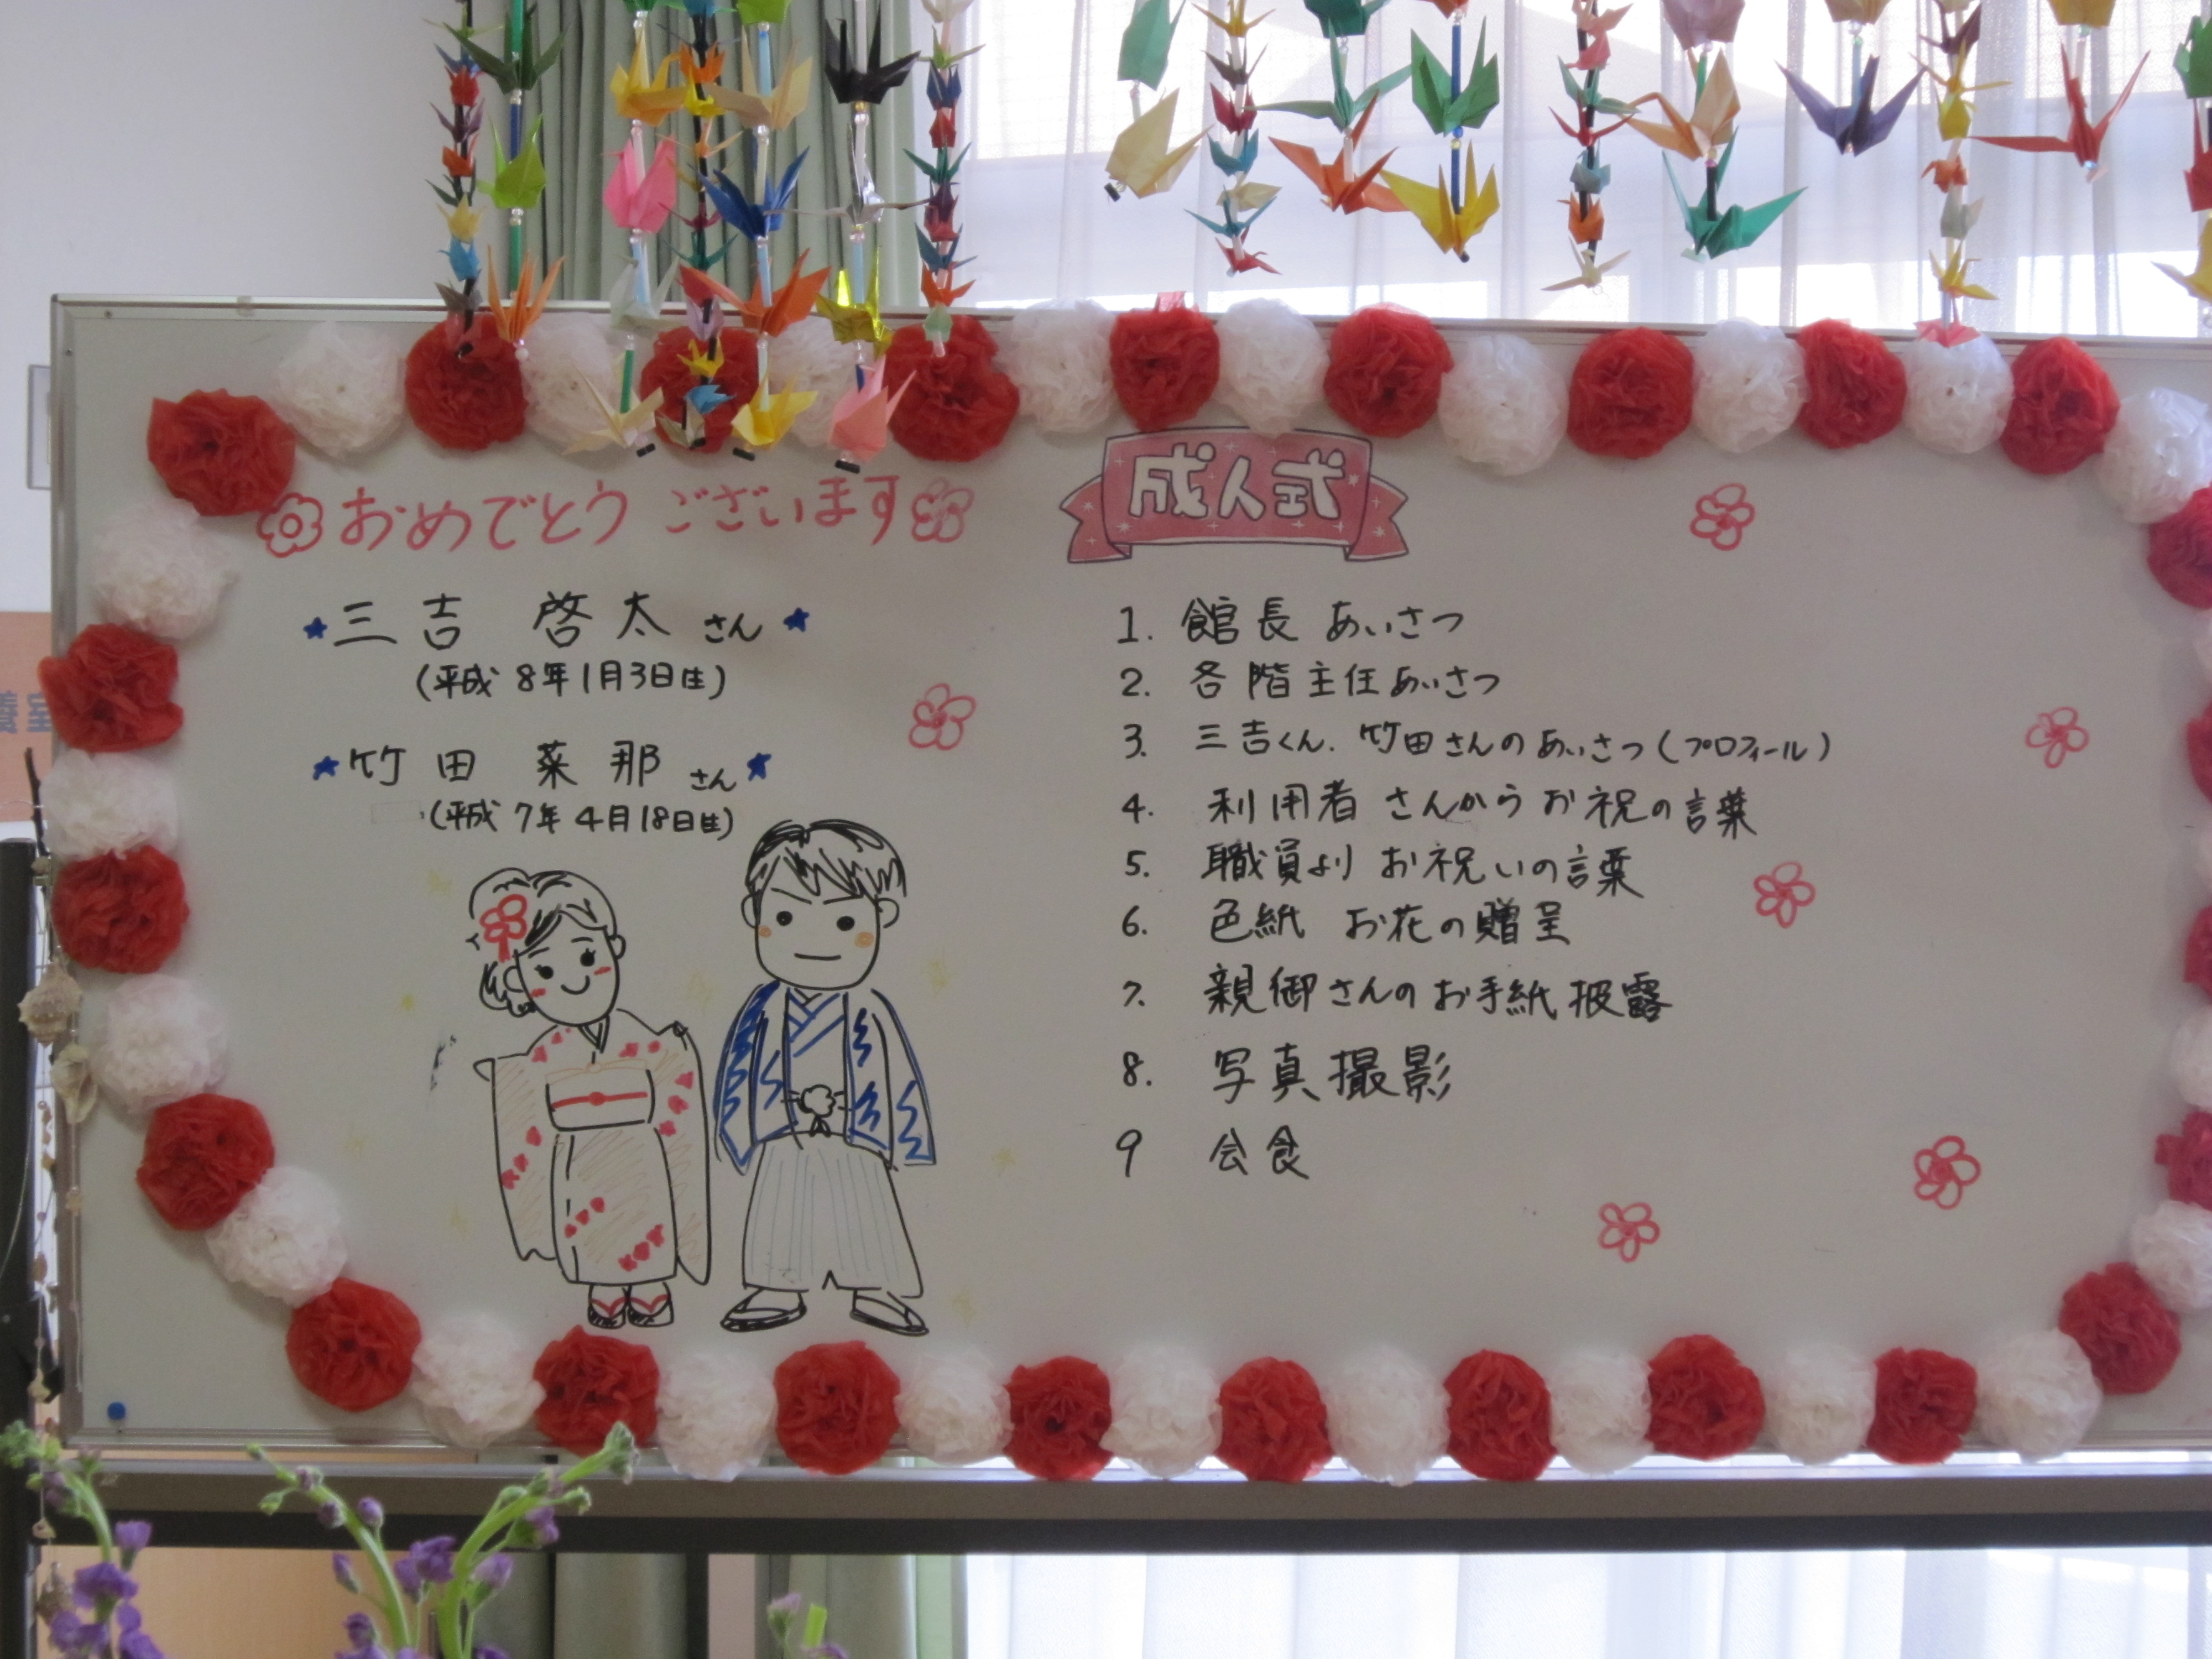 おめでとうございます
三吉 啓太さん
(平成8年1月3日生)
竹田 菜那さん
(平成7年4月18日生)
成人式
1. 館長 あいさつ
2. 各階主任あいさつ
3. 三吉くん、竹田さんのあいさつ(プロフィール)
4. 利用者さんからお祝の言葉
5. 職員より お祝いの言葉
6. 色紙 お花の贈呈
7. 親御さんのお手紙披露
8. 写真撮影
9 会食
養室